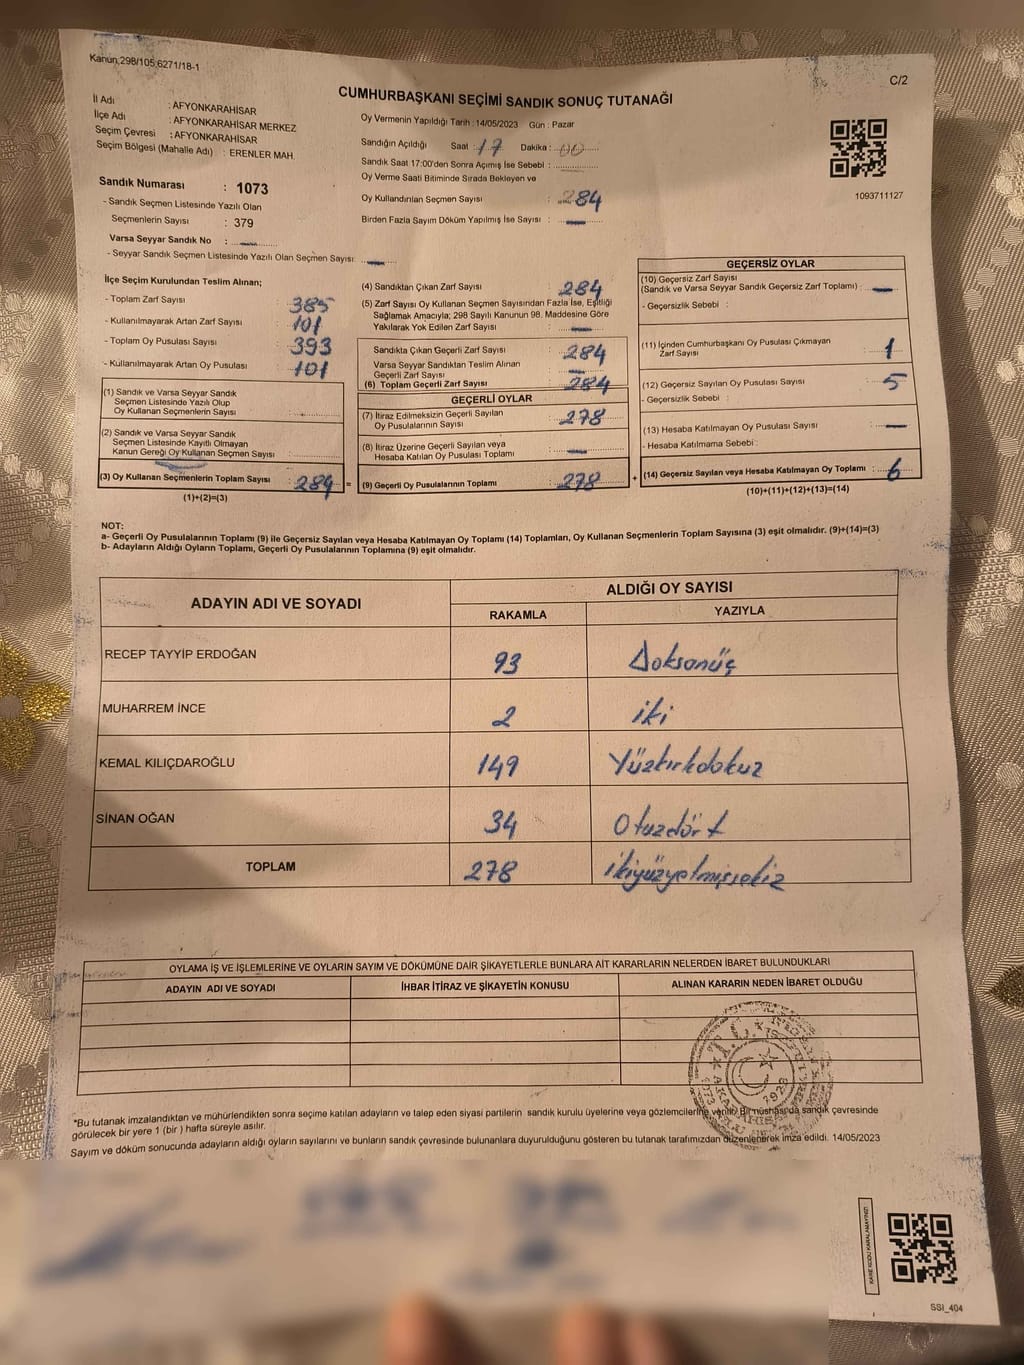 Kanun;298/105;6271/18-1
C/2
CUMHURBAŞKANI SEÇİMİ SANDIK SONUÇ TUTANAĞI
İl Adı : AFYONKARAHİSAR
İlçe Adı : AFYONKARAHİSAR MERKEZ
Seçim Çevresi : AFYONKARAHİSAR
Seçim Bölgesi (Mahalle Adı) : ERENLER MAH.
Sandık Numarası : 1073
- Sandık Seçmen Listesinde Yazılı Olan
Seçmenlerin Sayısı : 379
Varsa Seyyar Sandık No :
- Seyyar Sandık Seçmen Listesinde Yazılı Olan Seçmen Sayısı :
Oy Vermenin Yapıldığı Tarih : 14/05/2023 Gün : Pazar
Sandığın Açıldığı Saat : 17 Dakika : 00
Sandık Saat 17:00'den Sonra Açılmış İse Sebebi :
Oy Verme Saati Bitiminde Sırada Bekleyen ve
Oy Kullandırılan Seçmen Sayısı : 284
Birden Fazla Sayım Döküm Yapılmış İse Sayısı : —
1093711127
İlçe Seçim Kurulundan Teslim Alınan;
- Toplam Zarf Sayısı : 385
- Kullanılmayarak Artan Zarf Sayısı : 101
- Toplam Oy Pusulası Sayısı : 393
- Kullanılmayarak Artan Oy Pusulası : 101
(1) Sandık ve Varsa Seyyar Sandık
Seçmen Listesinde Yazılı Olup
Oy Kullanan Seçmenlerin Sayısı :
(2) Sandık ve Varsa Seyyar Sandık
Seçmen Listesinde Kayıtlı Olmayan
Kanun Gereği Oy Kullanan Seçmen Sayısı :
(3) Oy Kullanan Seçmenlerin Toplam Sayısı : 284 =
(1)+(2)=(3)
(4) Sandıktan Çıkan Zarf Sayısı : 284
(5) Zarf Sayısı Oy Kullanan Seçmen Sayısından Fazla İse, Eşitliği
Sağlamak Amacıyla; 298 Sayılı Kanunun 98. Maddesine Göre
Yakılarak Yok Edilen Zarf Sayısı : —
Sandıkta Çıkan Geçerli Zarf Sayısı : 284
Varsa Seyyar Sandıktan Teslim Alınan
Geçerli Zarf Sayısı : —
(6) Toplam Geçerli Zarf Sayısı : 284
GEÇERLİ OYLAR
(7) İtiraz Edilmeksizin Geçerli Sayılan
Oy Pusulalarının Sayısı : 278
(8) İtiraz Üzerine Geçerli Sayılan veya
Hesaba Katılan Oy Pusulası Toplamı : —
(9) Geçerli Oy Pusulalarının Toplamı : 278 +
GEÇERSİZ OYLAR
(10) Geçersiz Zarf Sayısı
(Sandık ve Varsa Seyyar Sandık Geçersiz Zarf Toplamı) : —
- Geçersizlik Sebebi :
(11) İçinden Cumhurbaşkanı Oy Pusulası Çıkmayan
Zarf Sayısı : 1
(12) Geçersiz Sayılan Oy Pusulası Sayısı : 5
- Geçersizlik Sebebi :
(13) Hesaba Katılmayan Oy Pusulası Sayısı : —
- Hesaba Katılmama Sebebi :
(14) Geçersiz Sayılan veya Hesaba Katılmayan Oy Toplamı : 6
(10)+(11)+(12)+(13)=(14)
NOT:
a- Geçerli Oy Pusulalarının Toplamı (9) ile Geçersiz Sayılan veya Hesaba Katılmayan Oy Toplamı (14) Toplamları, Oy Kullanan Seçmenlerin Toplam Sayısına (3) eşit olmalıdır. (9)+(14)=(3)
b- Adayların Aldığı Oyların Toplamı, Geçerli Oy Pusulalarının Toplamına (9) eşit olmalıdır.
ADAYIN ADI VE SOYADI ALDIĞI OY SAYISI
RAKAMLA YAZIYLA
RECEP TAYYİP ERDOĞAN 93 Doksanüç
MUHARREM İNCE 2 iki
KEMAL KILIÇDAROĞLU 149 Yüzkırkdokuz
SİNAN OĞAN 34 Otuzdört
TOPLAM 278 ikiyüzyetmişsekiz
OYLAMA İŞ VE İŞLEMLERİNE VE OYLARIN SAYIM VE DÖKÜMÜNE DAİR ŞİKAYETLERLE BUNLARA AİT KARARLARIN NELERDEN İBARET BULUNDUKLARI
ADAYIN ADI VE SOYADI İHBAR İTİRAZ VE ŞİKAYETİN KONUSU ALINAN KARARIN NEDEN İBARET OLDUĞU
T.C.
1923
*Bu tutanak imzalandıktan ve mühürlendikten sonra seçime katılan adayların ve talep eden siyasi partilerin sandık kurulu üyelerine veya gözlemcilerine verilir. Bir nüshası da sandık çevresinde
görülecek bir yere 1 (bir) hafta süreyle asılır.
Sayım ve döküm sonucunda adayların aldığı oyların sayılarını ve bunların sandık çevresinde bulunanlara duyurulduğunu gösteren bu tutanak tarafımızdan düzenlenerek imza edildi. 14/05/2023
KARE KODU KARALAMAYINIZ!
SSI_404